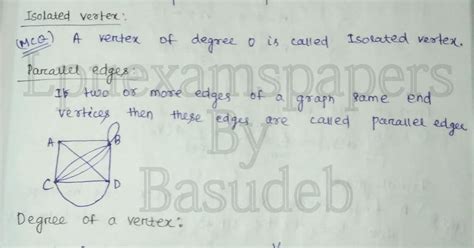 Isolated vertex:
(MCQ) A vertex of degree 0 is called Isolated vertex.
Parallel edges:
If two or more edges of a graph same end
vertices then these edges are called parallel edges
A B
C D
Degree of a vertex:
Epiexamspapers
By
Basudeb